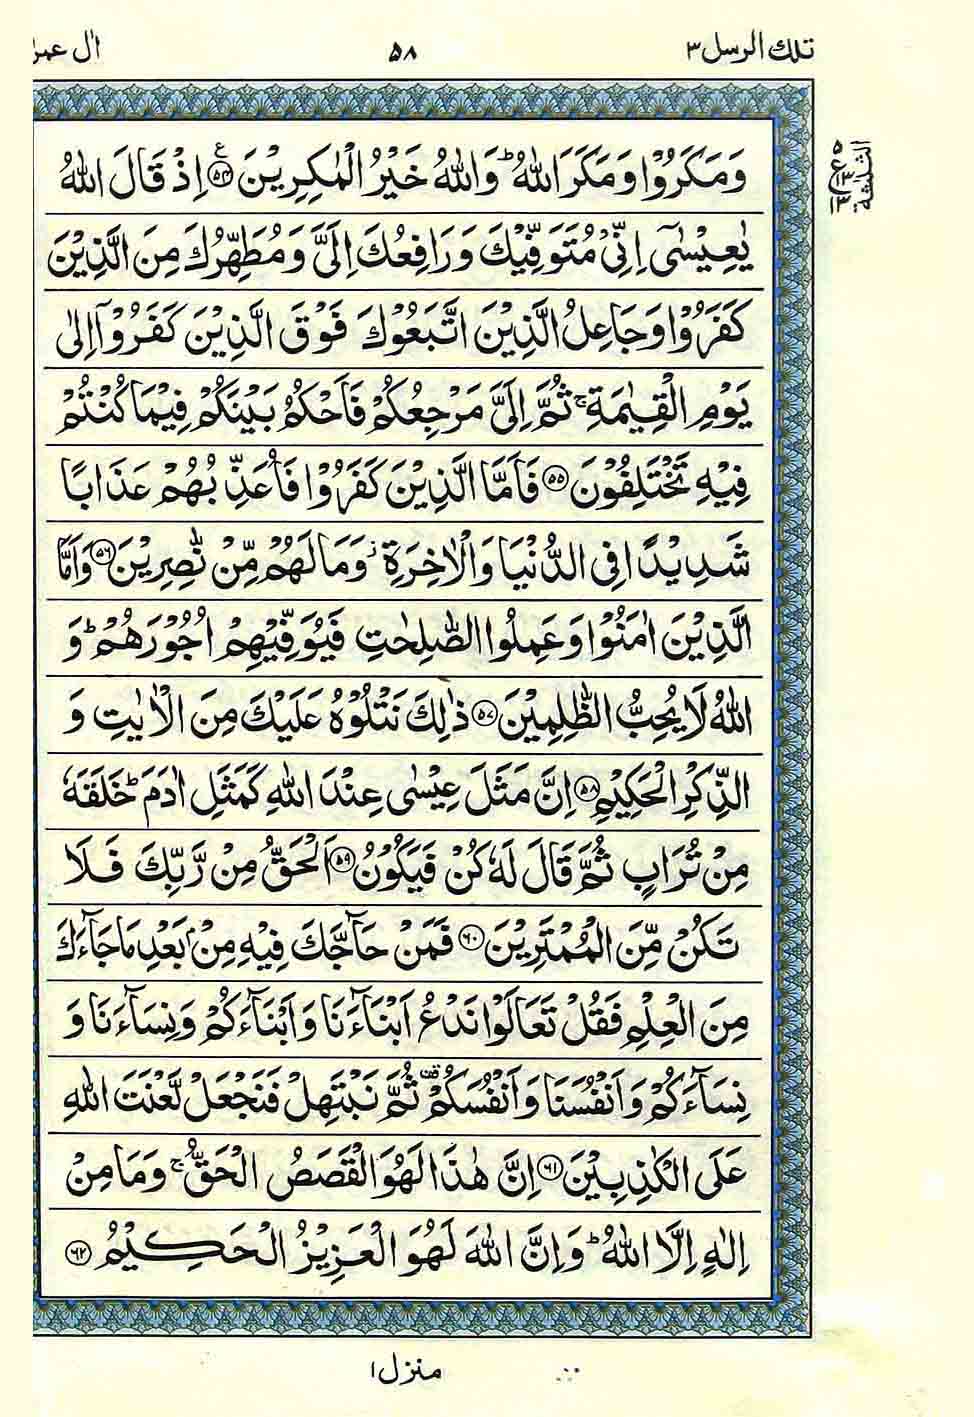 تلك الرسل ۳
۵۸
اٰل عمرٰ
وَمَكَرُوْا وَمَكَرَ اللّٰهُ ؕ وَاللّٰهُ خَيْرُ الْمٰكِرِيْنَ ﴿۵۴﴾ ع اِذْ قَالَ اللّٰهُ
يٰعِيْسٰۤى اِنِّىْ مُتَوَفِّيْكَ وَرَافِعُكَ اِلَىَّ وَمُطَهِّرُكَ مِنَ الَّذِيْنَ
كَفَرُوْا وَجَاعِلُ الَّذِيْنَ اتَّبَعُوْكَ فَوْقَ الَّذِيْنَ كَفَرُوْۤا اِلٰى
يَوْمِ الْقِيٰمَةِ ۚ ثُمَّ اِلَىَّ مَرْجِعُكُمْ فَاَحْكُمُ بَيْنَكُمْ فِيْمَا كُنْتُمْ
فِيْهِ تَخْتَلِفُوْنَ ﴿۵۵﴾ فَاَمَّا الَّذِيْنَ كَفَرُوْا فَاُعَذِّبُهُمْ عَذَابًا
شَدِيْدًا فِى الدُّنْيَا وَالْاٰخِرَةِ ؗ وَمَا لَهُمْ مِّنْ نّٰصِرِيْنَ ﴿۵۶﴾ وَاَمَّا
الَّذِيْنَ اٰمَنُوْا وَعَمِلُوا الصّٰلِحٰتِ فَيُوَفِّيْهِمْ اُجُوْرَهُمْ ؕ وَ
اللّٰهُ لَا يُحِبُّ الظّٰلِمِيْنَ ﴿۵۷﴾ ذٰلِكَ نَتْلُوْهُ عَلَيْكَ مِنَ الْاٰيٰتِ وَ
الذِّكْرِ الْحَكِيْمِ ﴿۵۸﴾ اِنَّ مَثَلَ عِيْسٰى عِنْدَ اللّٰهِ كَمَثَلِ اٰدَمَ ؕ خَلَقَهٗ
مِنْ تُرَابٍ ثُمَّ قَالَ لَهٗ كُنْ فَيَكُوْنُ ﴿۵۹﴾ اَلْحَقُّ مِنْ رَّبِّكَ فَلَا
تَكُنْ مِّنَ الْمُمْتَرِيْنَ ﴿۶۰﴾ فَمَنْ حَآجَّكَ فِيْهِ مِنْۢ بَعْدِ مَا جَآءَكَ
مِنَ الْعِلْمِ فَقُلْ تَعَالَوْا نَدْعُ اَبْنَآءَنَا وَاَبْنَآءَكُمْ وَنِسَآءَنَا وَ
نِسَآءَكُمْ وَاَنْفُسَنَا وَاَنْفُسَكُمْ ۫ ثُمَّ نَبْتَهِلْ فَنَجْعَلْ لَّعْنَتَ اللّٰهِ
عَلَى الْكٰذِبِيْنَ ﴿۶۱﴾ اِنَّ هٰذَا لَهُوَ الْقَصَصُ الْحَقُّ ۚ وَمَا مِنْ
اِلٰهٍ اِلَّا اللّٰهُ ؕ وَاِنَّ اللّٰهَ لَهُوَ الْعَزِيْزُ الْحَكِيْمُ ﴿۶۲﴾
الثلثة
۵ ع ۱۳ ۱۳
منزل ۱